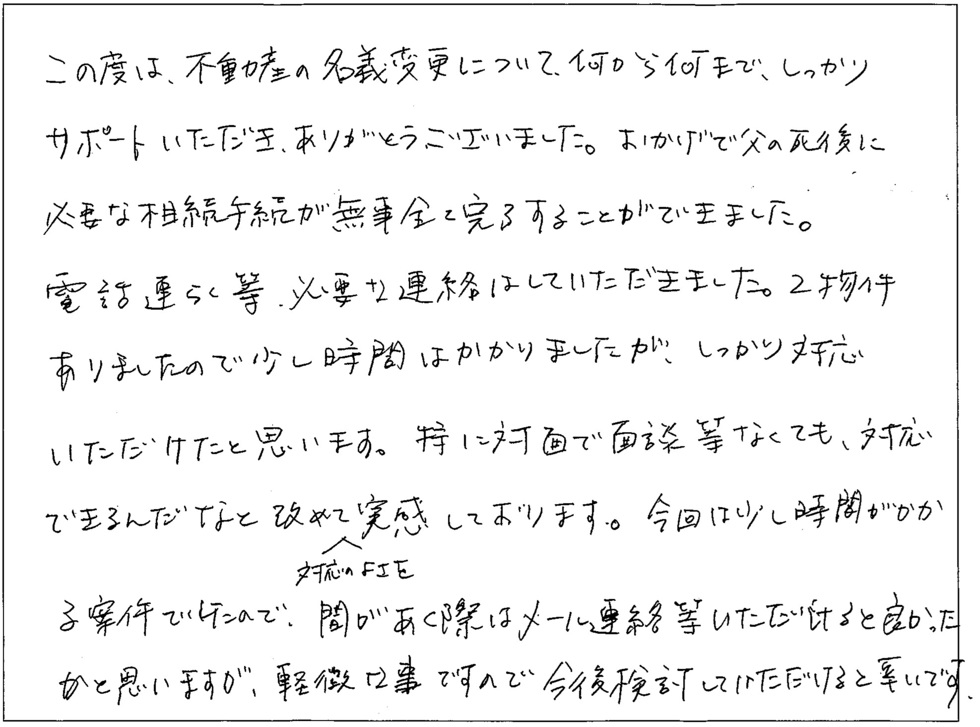 この度は、不動産の名義変更について、何から何まで、しっかり
サポートいただき、ありがとうございました。おかげで父の死後に
必要な相続手続が無事全て完了することができました。
電話連らく等、必要な連絡はしていただきました。2物件
ありましたので少し時間はかかりましたが、しっかり対応
いただけたと思います。特に対面で面談等なくても、対応
できるんだなと改めて実感しております。今回は少し時間がかか
対応のよさを
る案件でしたので、間があく際はメール連絡等いただけると良かった
かと思いますが、軽微な事ですので今後検討していただけると幸いです。